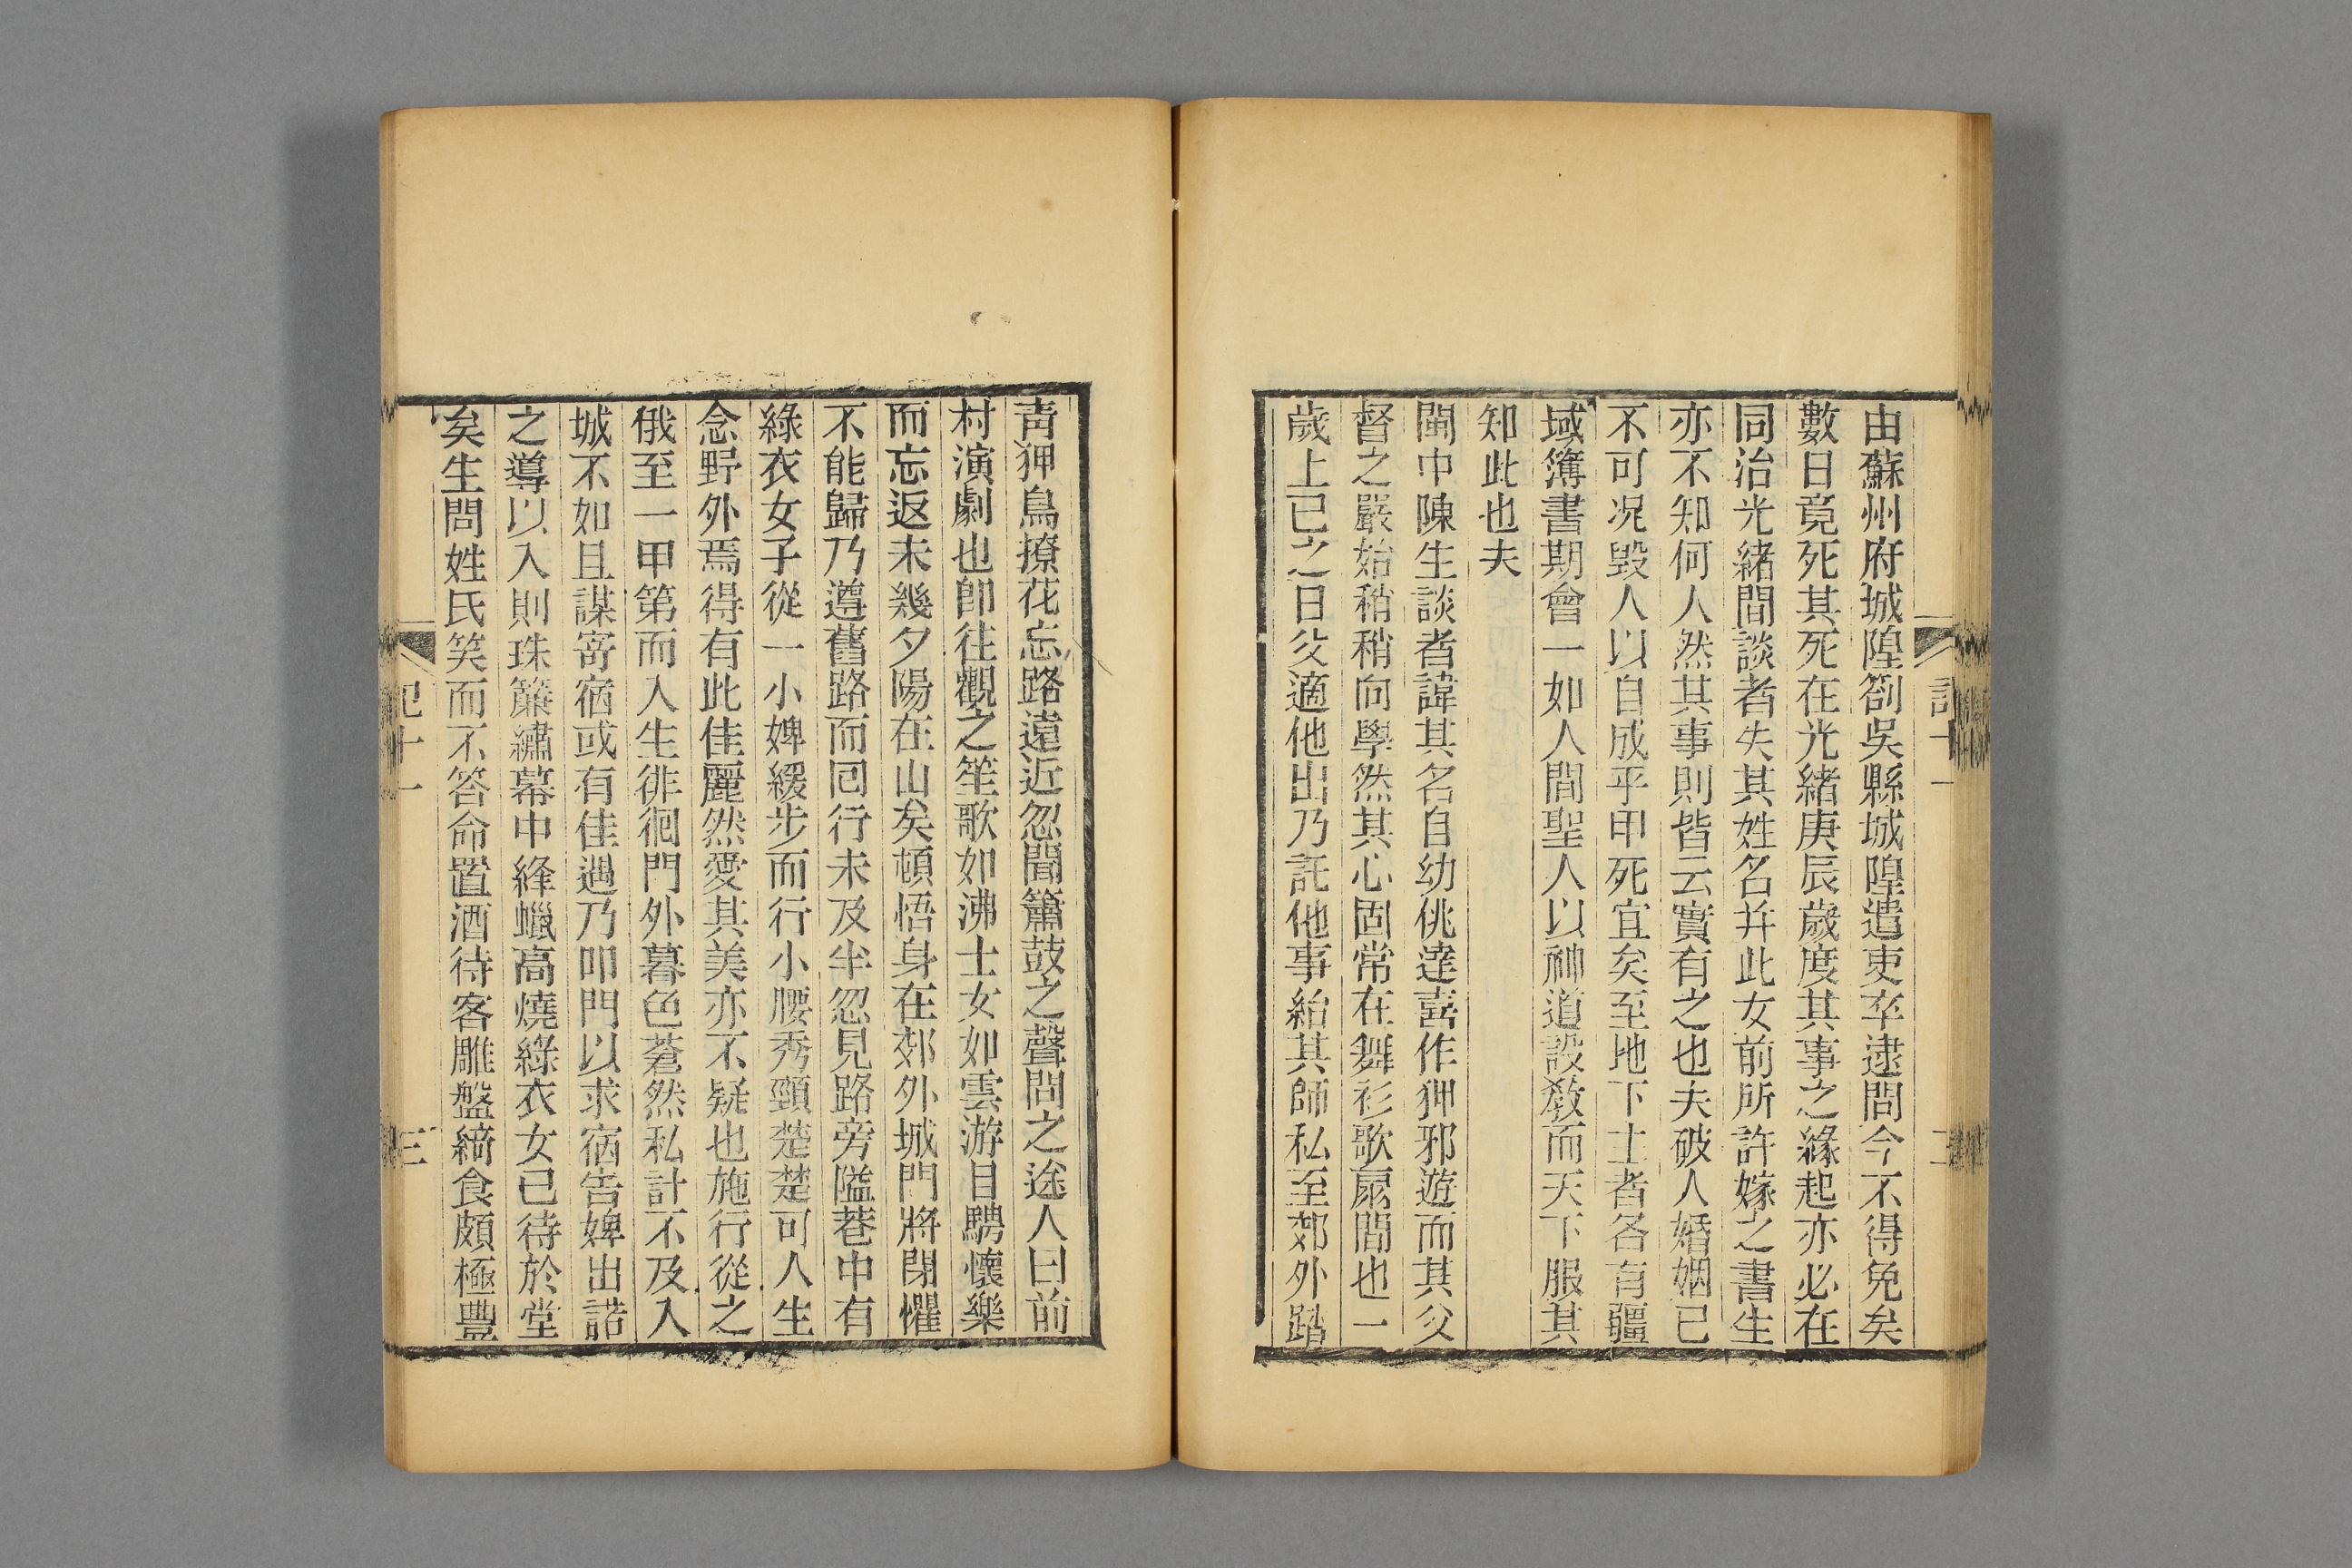 由蘇州府城隍劄吳縣城隍遣吏卒逮問今不得免矣
數日竟死其死在光緒庚辰歲度其事之緣起亦必在
同治光緒間談者失其姓名幷此女前所許嫁之書生
亦不知何人然其事則皆云實有之也夫破人婚姻已
不可況毀人以自成乎甲死宜矣至地下土者各有疆
域簿書期會一如人間聖人以神道設敎而天下服其
知此也夫
閩中陳生談者諱其名自幼佻達喜作狎邪遊而其父
督之嚴始稍稍向學然其心固常在舞衫歌扇間也一
歲上巳之日父適他出乃託他事紿其師私至郊外踏
靑狎鳥撩花忘路遠近忽聞簫鼓之聲問之途人曰前
村演劇也卽往觀之笙歌如沸士女如雲游目騁懷樂
而忘返未幾夕陽在山矣頓悟身在郊外城門將閉懼
不能歸乃遵舊路而回行未及半忽見路旁隘巷中有
綠衣女子從一小婢緩步而行小腰秀頸楚楚可人生
念野外焉得有此佳麗然愛其美亦不疑也施行從之
俄至一甲第而入生徘徊門外暮色蒼然私計不及入
城不如且謀寄宿或有佳遇乃叩門以求宿告婢出諾
之導以入則珠簾繡幕中絳蠟高燒綠衣女已待於堂
矣生問姓氏笑而不答命置酒待客雕盤綺食頗極豐
記十一
三